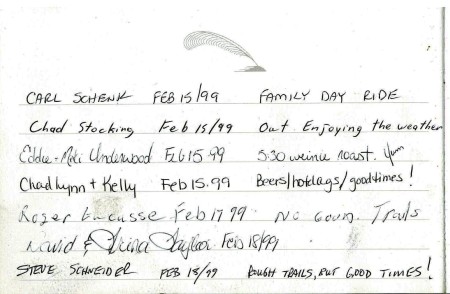 CARL SCHENK FEB 15/99 FAMILY DAY RIDE
Chad Stocking Feb 15/99 Out Enjoying the weather
Eddie + Underwood Feb 15.99 5:30 weinie roast. Yum
Chad Lynn + Kelly Feb 15.99 Beers/hotdogs/goodtimes!
Roger Feb 17 99 NO Trails
David & Feb 18/99
STEVE SCHNEIDER FEB 18/99 ROUGH TRAILS, BUT GOOD TIMES!